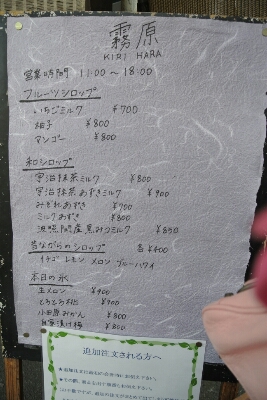 霧原
KIRI HARA
営業時間 11:00～18:00
フルーツシロップ
いちごミルク ¥700
柚子 ¥800
マンゴー ¥800
和シロップ
宇治抹茶ミルク ¥800
宇治抹茶あずきミルク ¥900
みぞれあずき ¥700
ミルクあずき ¥800
波照間産黒みつミルク ¥850
昔ながらのシロップ 各¥400
イチゴ レモン メロン ブルーハワイ
本日の氷
生メロン ¥900
とろとろ桃 ¥900
小田原みかん ¥800
自家漬け梅 ¥800
追加注文される方へ